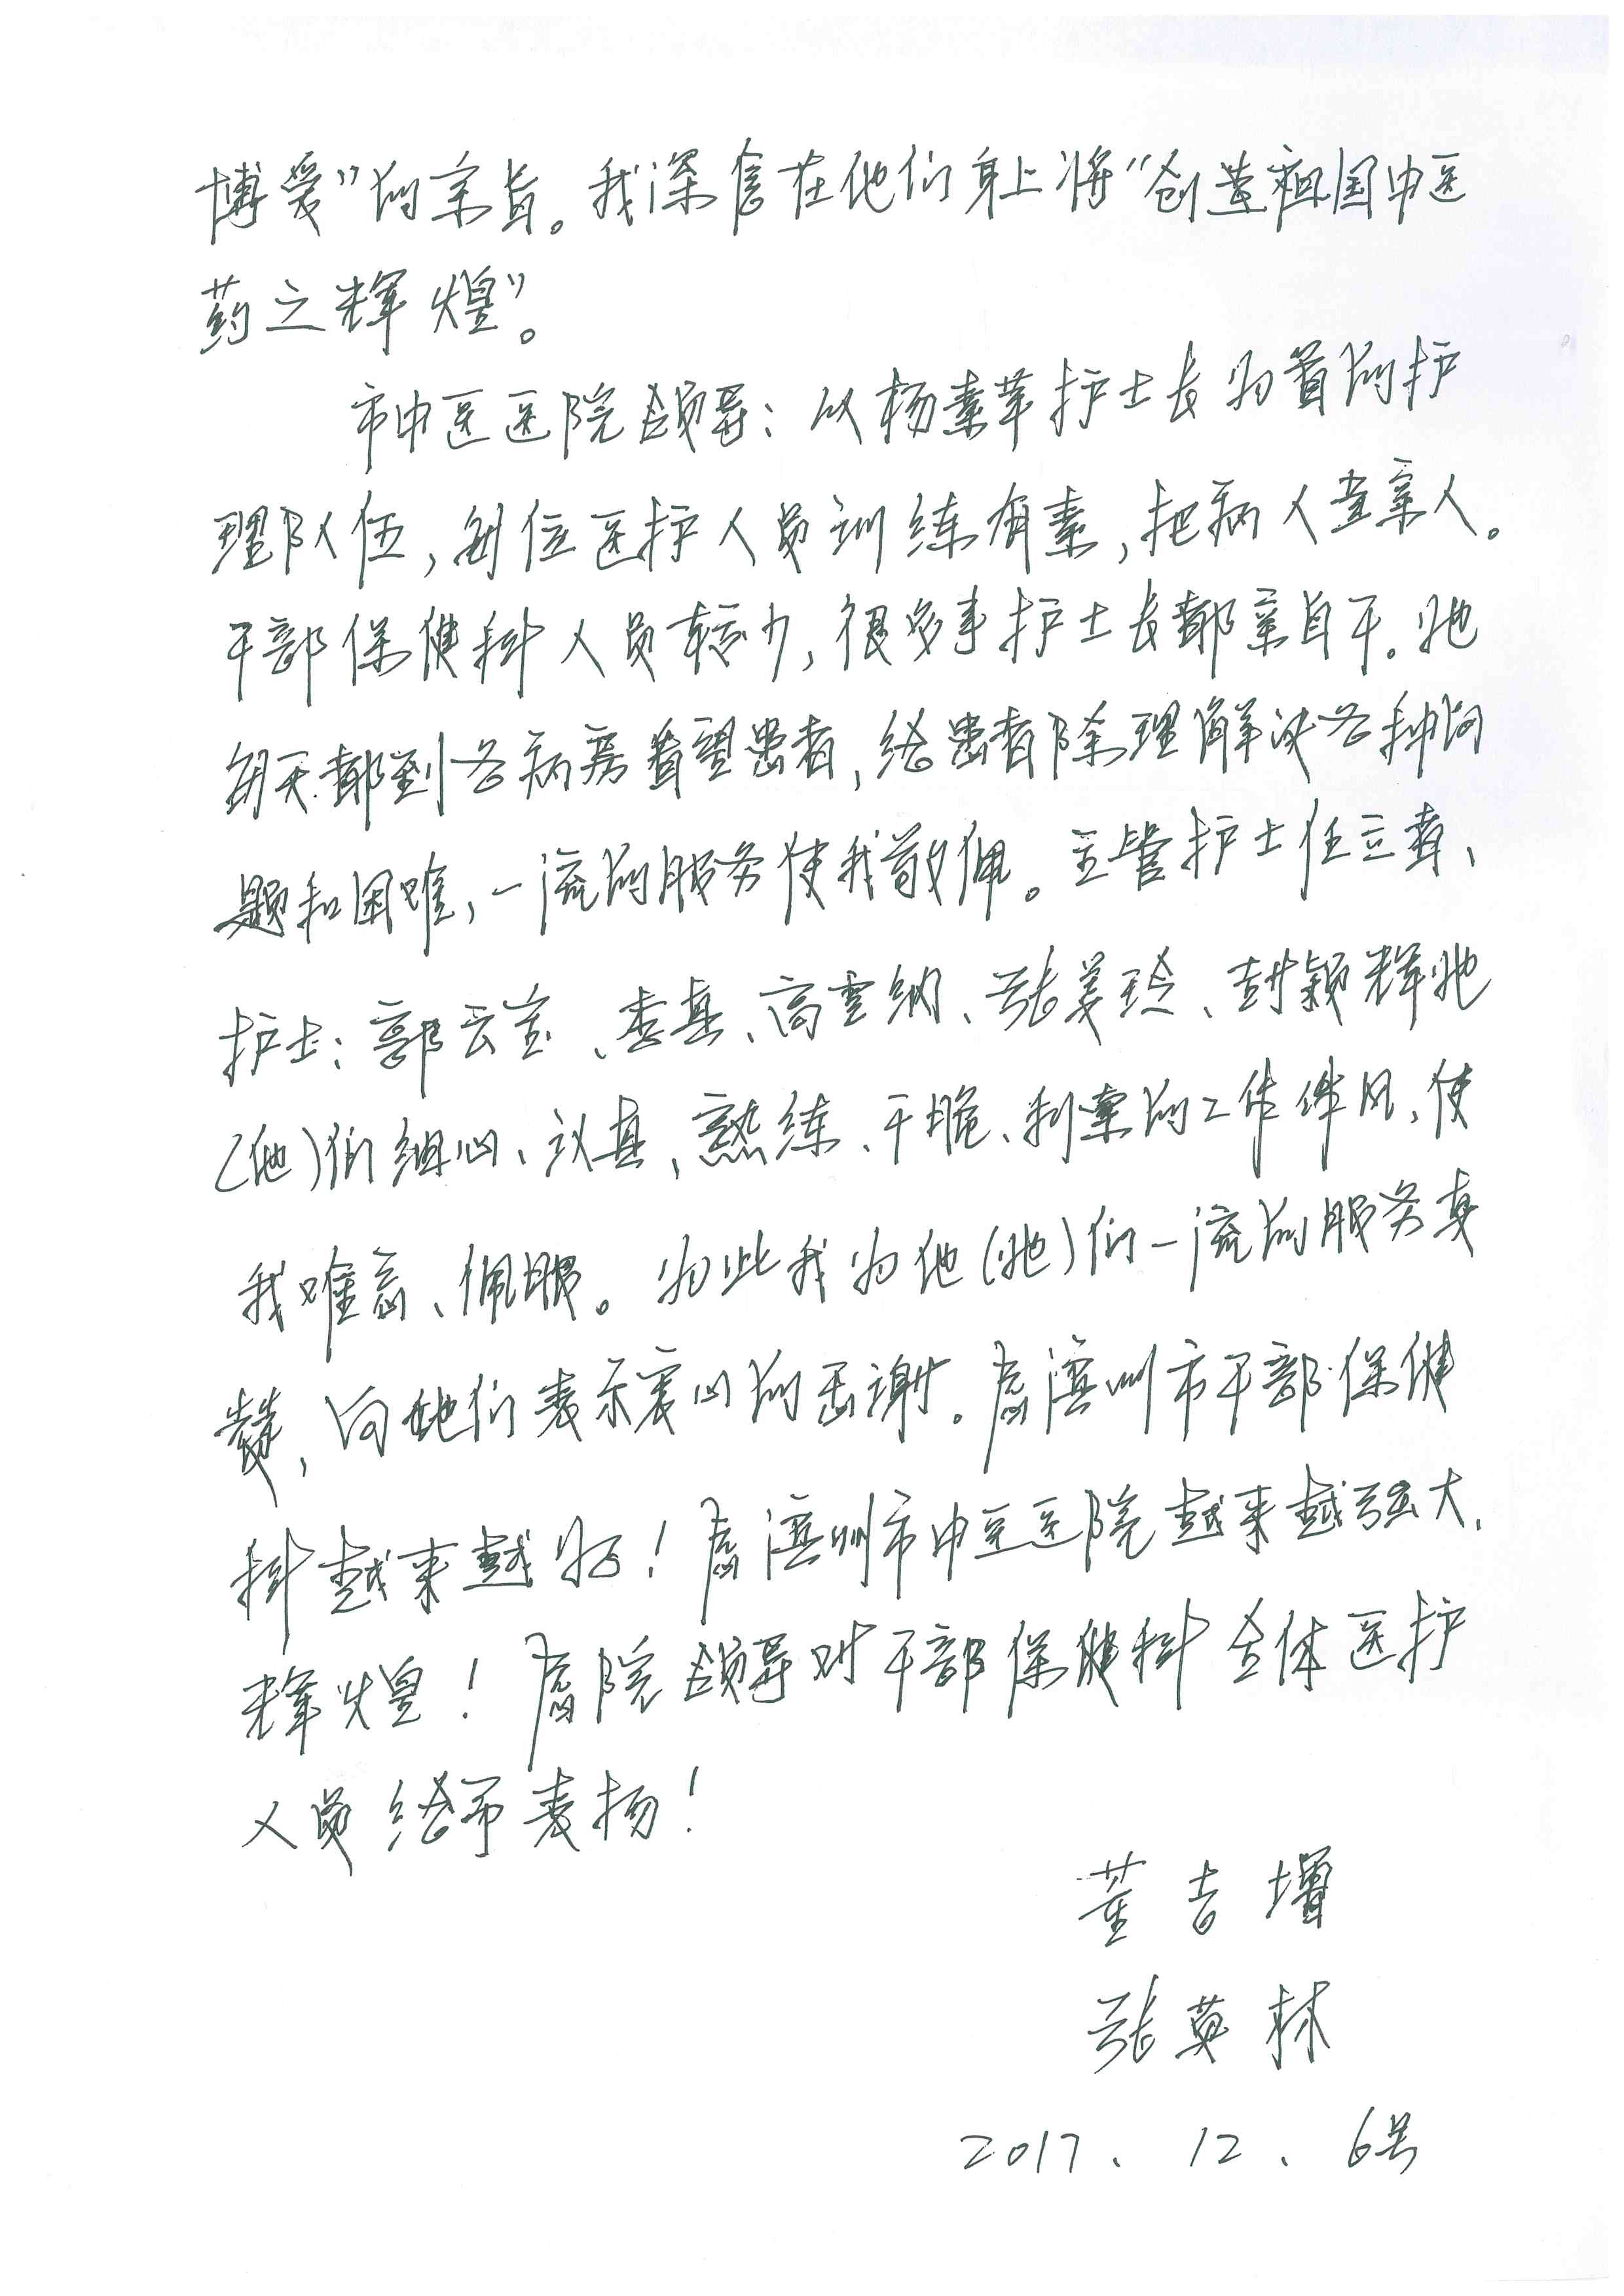 博爱”的宗旨。我深信在他们身上将“创造祖国中医
药之辉煌”。
市中医医院领导：以杨素苹护士长为首的护
理队伍，每位医护人员训练有素，把病人当亲人。
干部保健科人员较少，很多事护士长都亲自干。她
每天都到各病房看望患者，给患者除理解决各种问
题和困难，一流的服务使我敬佩。主管护士任立春、
护士：郭云、李真、高雪纳、张美玲、封颖辉她
(他)们细心、认真、熟练、干脆、利索的工作作风，使
我难忘、佩服。为此我为他(她)们一流的服务真
赞，向她们表示衷心的感谢。愿滨州市干部保健
科越来越好！愿滨州市中医医院越来越强大、
辉煌！愿院领导对干部保健科全体医护
人员给予表扬！
董吉增
张英林
2017、12、6号